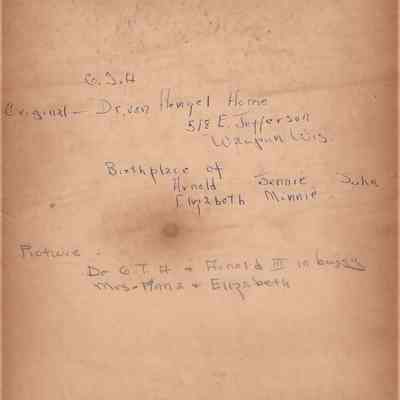 G. J. H
Original - Dr. van Hengel Home
518 E. Jefferson
Waupun Wis.
Birthplace of
Arnold Jennie John
Elizabeth Minnie
Picture :
Dr G. T. H + Arnold III in buggy
Mrs. Anna + Elizabeth